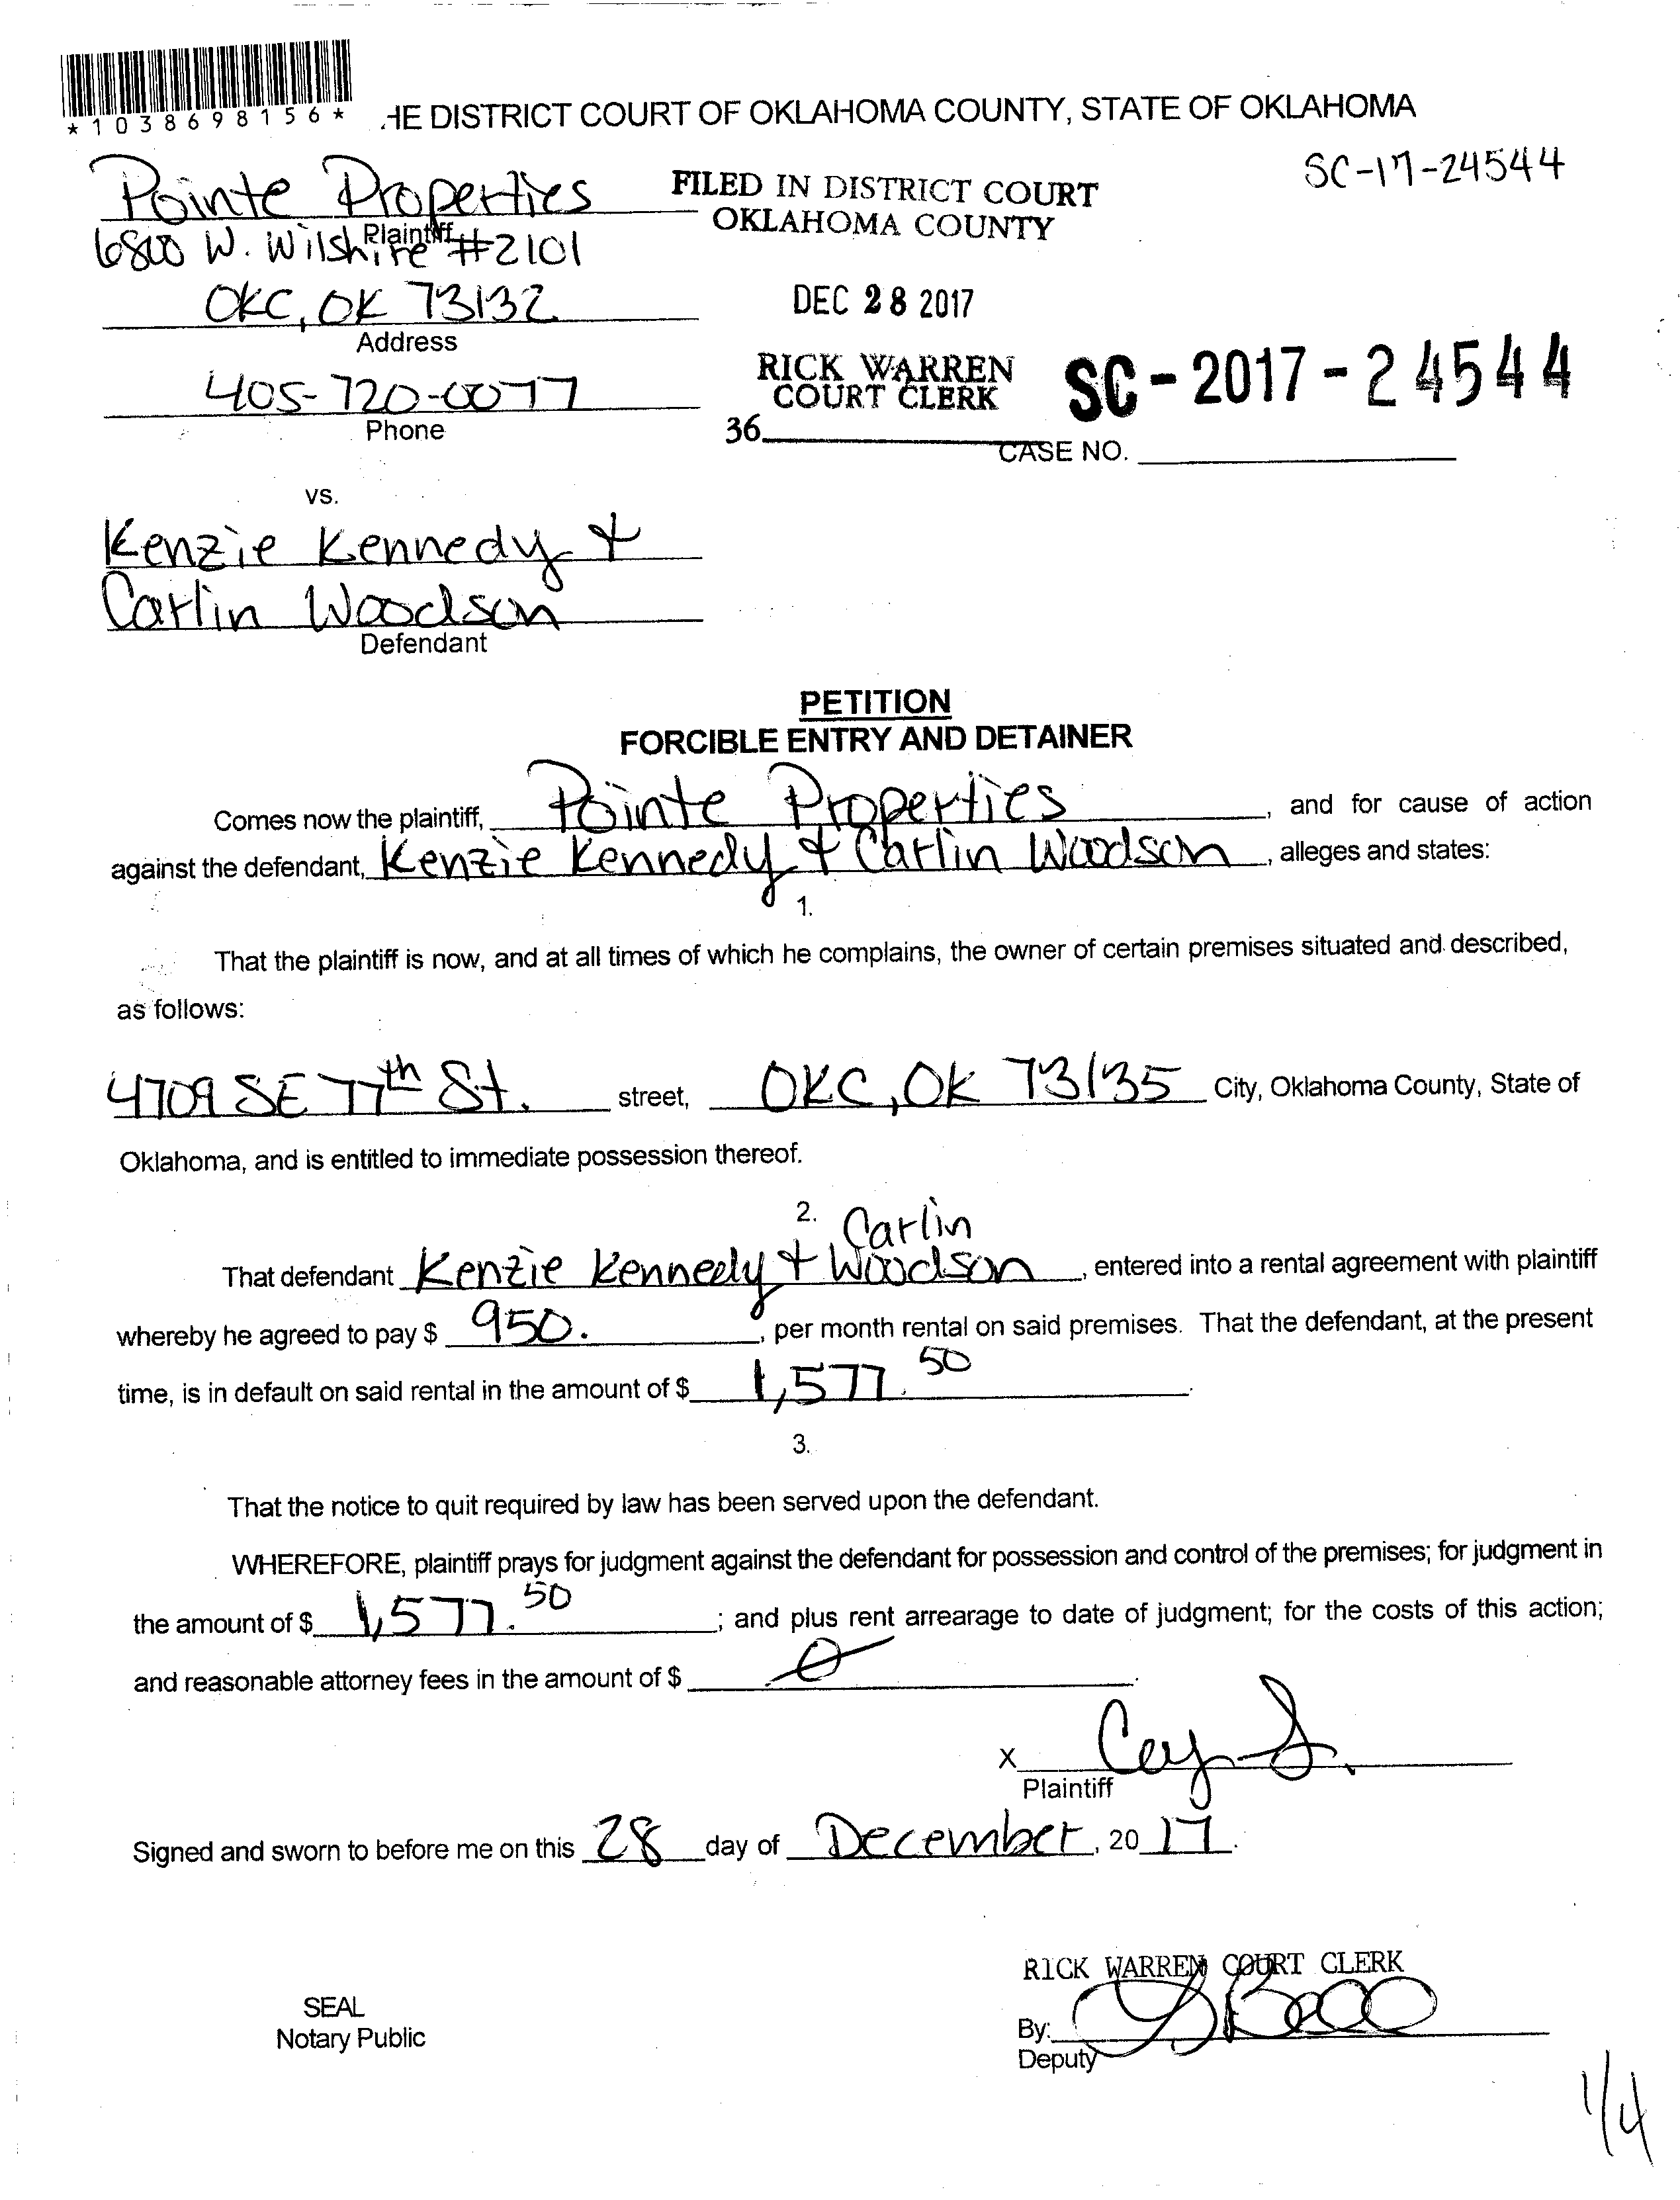 *1038698156*
HE DISTRICT COURT OF OKLAHOMA COUNTY, STATE OF OKLAHOMA
SC-17-24544
Pointe Properties
Plaintiff
FILED IN DISTRICT COURT
OKLAHOMA COUNTY
6800 W. Wilshire #2101
OKC, OK 73132
Address
DEC 28 2017
405-720-0077
Phone
RICK WARREN
COURT CLERK
SC-2017-24544
36
CASE NO.
vs.
Kenzie Kennedy &
Carlin Woodson
Defendant
PETITION
FORCIBLE ENTRY AND DETAINER
Comes now the plaintiff, Pointe Properties, and for cause of action
against the defendant, Kenzie Kennedy & Carlin Woodson, alleges and states:
1.
That the plaintiff is now, and at all times of which he complains, the owner of certain premises situated and described,
as follows:
4709 SE 77th St. street, OKC, OK 73135 City, Oklahoma County, State of
Oklahoma, and is entitled to immediate possession thereof.
2.
That defendant Kenzie Kennedy & Carlin Woodson, entered into a rental agreement with plaintiff
whereby he agreed to pay $ 950., per month rental on said premises. That the defendant, at the present
time, is in default on said rental in the amount of $ 1,577.50.
3.
That the notice to quit required by law has been served upon the defendant.
WHEREFORE, plaintiff prays for judgment against the defendant for possession and control of the premises; for judgment in
the amount of $ 1,577.50; and plus rent arrearage to date of judgment; for the costs of this action;
and reasonable attorney fees in the amount of $ 0.
X
Plaintiff
Signed and sworn to before me on this 28 day of December, 2017.
RICK WARREN COURT CLERK
SEAL
Notary Public
By:
Deputy
1/4